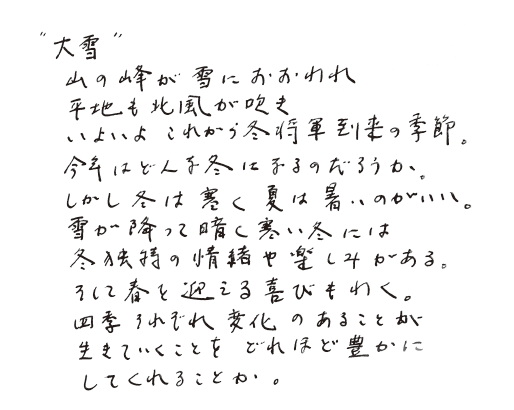 "大雪"
山の峰が雪におおわれ
平地も北風が吹き
いよいよ これから冬将軍到来の季節。
今年はどんな冬になるのだろうか。
しかし冬は寒く夏は暑いのがいい。
雪が降って暗く寒い冬には
冬独特の情緒や楽しみがある。
そして春を迎える喜びもわく。
四季それぞれ変化のあることが
生きていくことを どれほど豊かに
してくれることか。